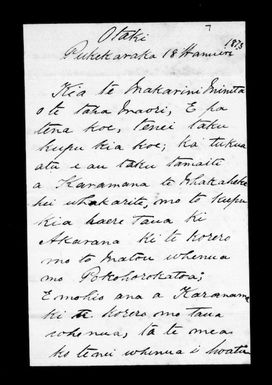 Otaki
Pukekaraka 18 Hanueri
1873
Kia te Makarini Minita
o te taha Maori, E pa
tena koe, tenei taku
kupu kia koe; ka tukua
atu e au taku tamaiti
a Karamana te Whakaheke
hei whakarite, mo to kupu
kia haere taua ki
Akarana ki te korero
mo to Matou whenua
mo Pokohorokatoa;
E mohio ana a Karanama
ki te korero mo taua
whenua, ta te mea
ko tenei whenua i hoatu